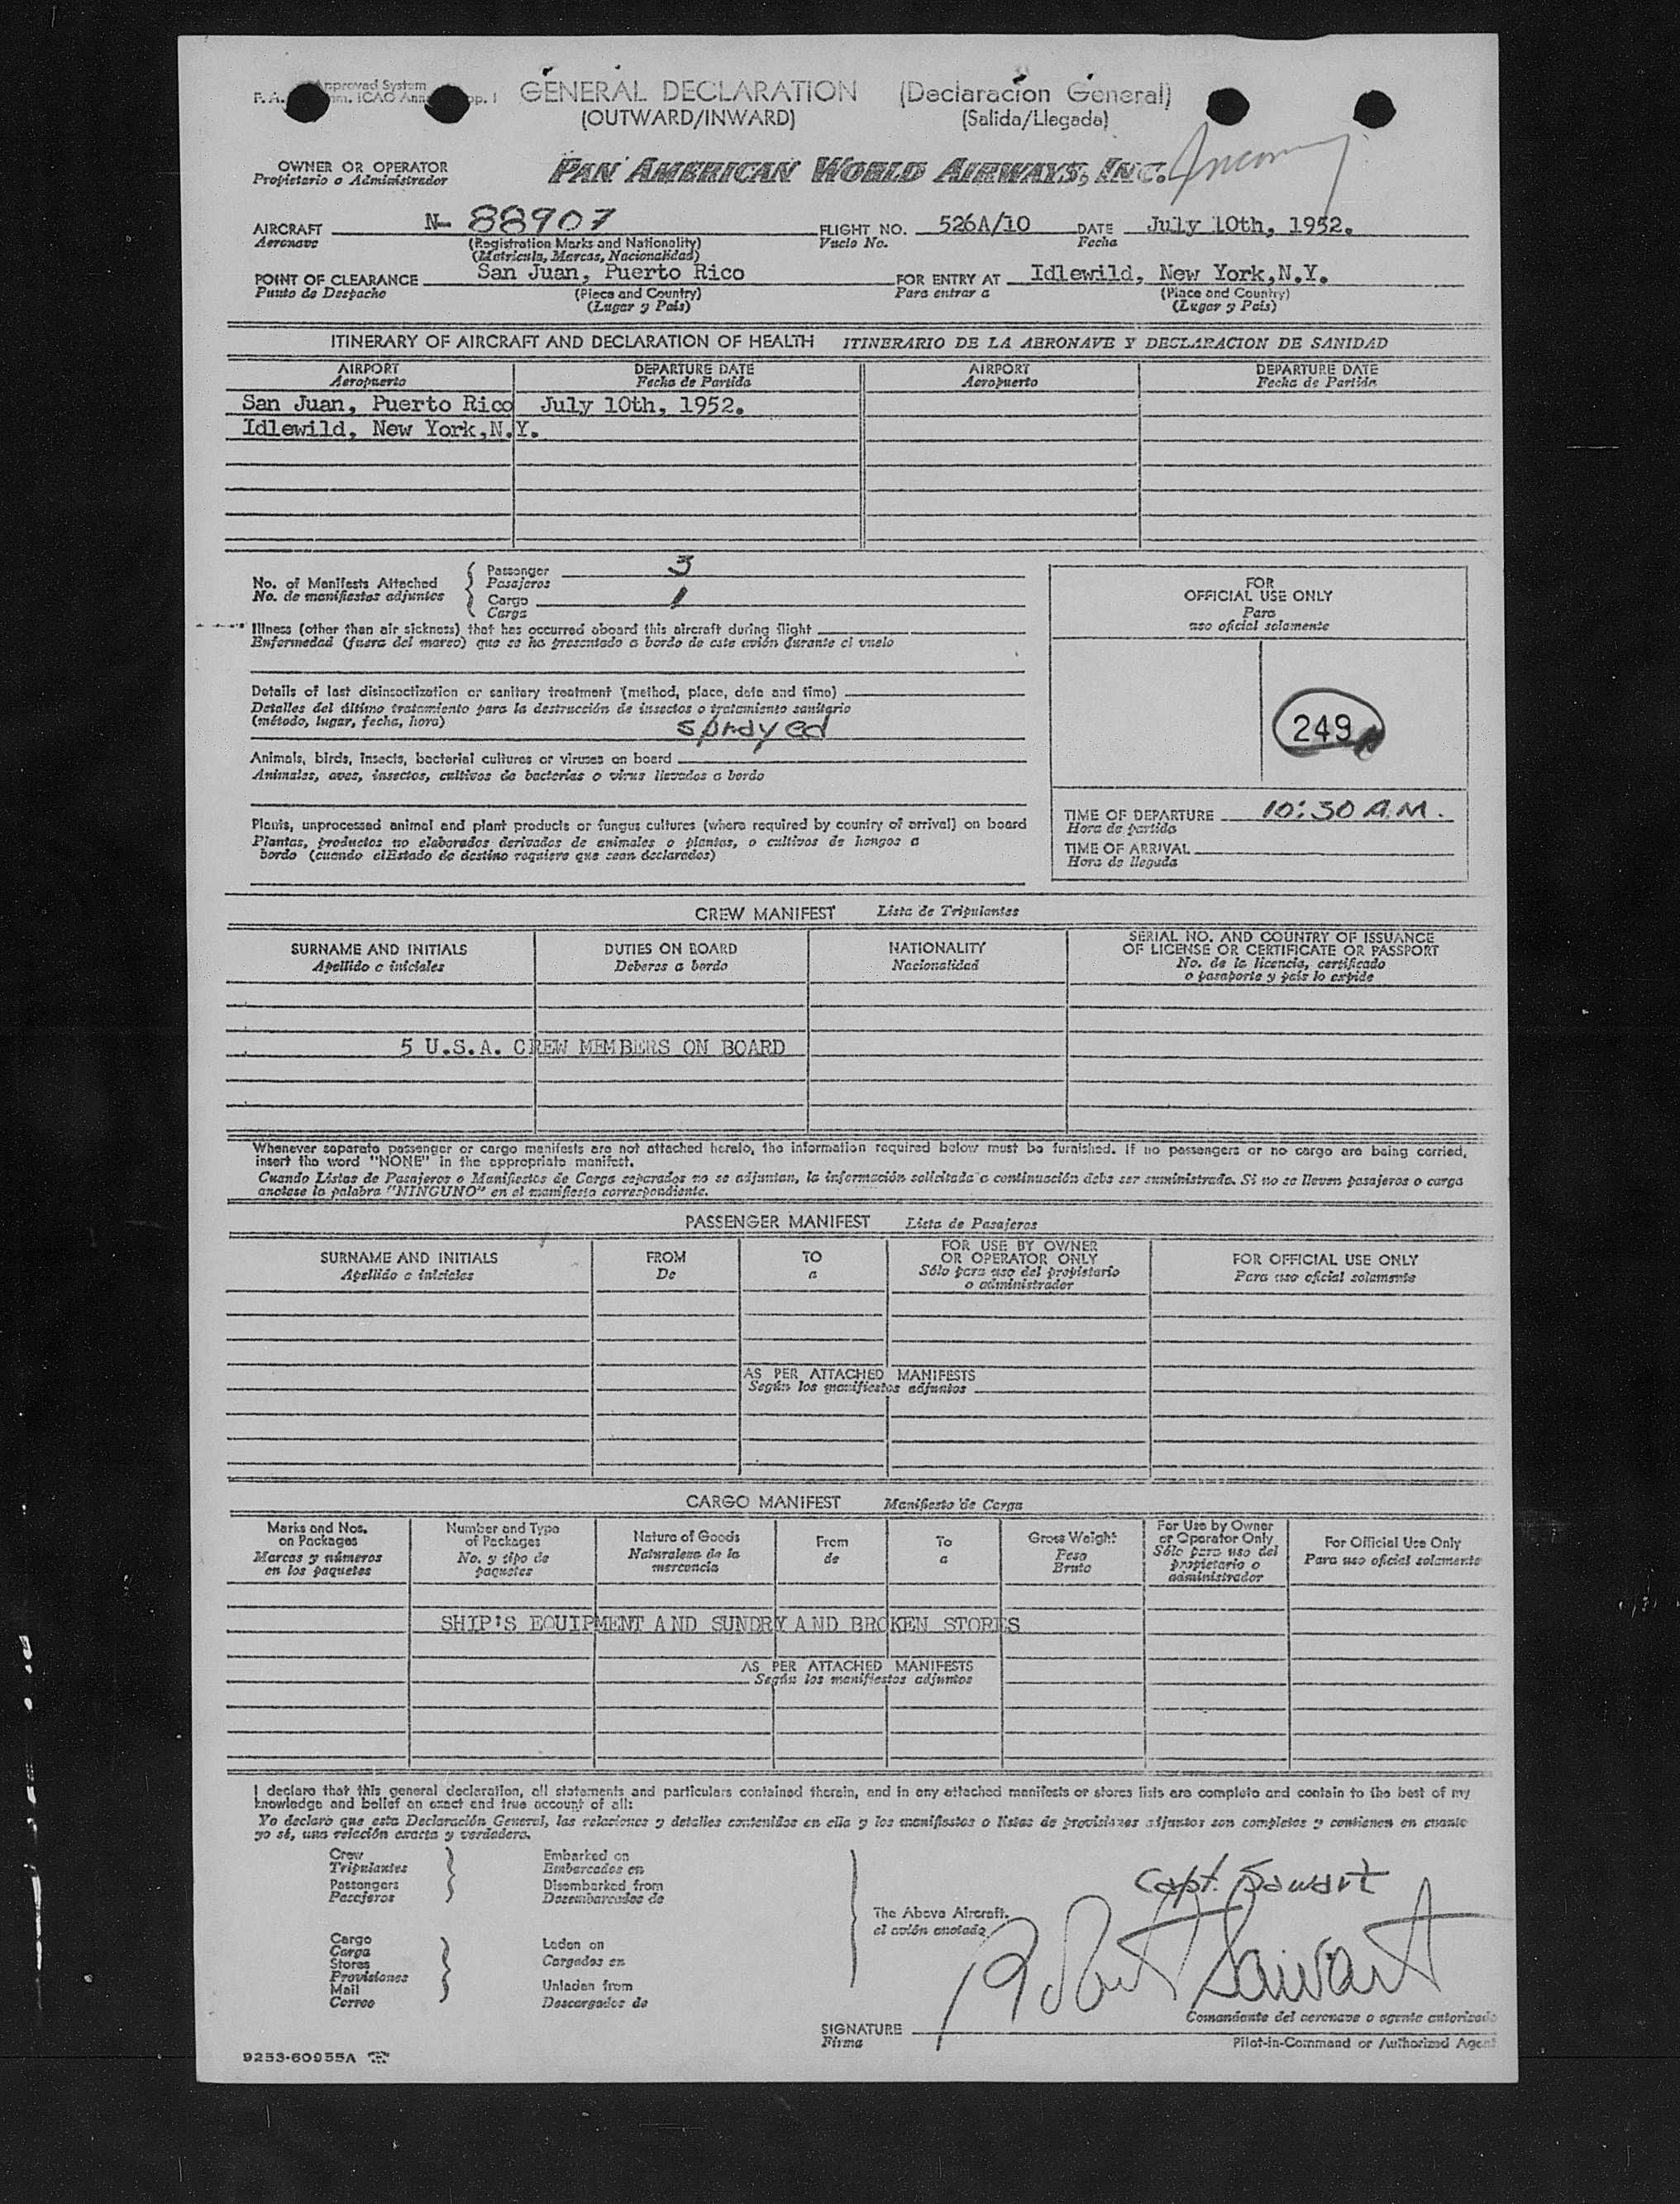 pproved System
F. A. mm. ICAO Ann pp. I
GENERAL DECLARATION (Declaracion General)
(OUTWARD/INWARD) (Salida/Llegada)
OWNER OR OPERATOR PAN AMERICAN WORLD AIRWAYS, INC.
Propietario o Administrador
AIRCRAFT N- 88907 FLIGHT NO. 526A/10 DATE July 10th, 1952.
Aeronave (Registration Marks and Nationality) Vuelo No. Fecha
(Matricula, Marcas, Nacionalidad)
POINT OF CLEARANCE San Juan, Puerto Rico FOR ENTRY AT Idlewild, New York,N.Y.
Punto de Despacho (Place and Country) Para entrar a (Place and Country)
(Lugar y Pais) (Lugar y Pais)
ITINERARY OF AIRCRAFT AND DECLARATION OF HEALTH ITINERARIO DE LA AERONAVE Y DECLARACION DE SANIDAD
AIRPORT DEPARTURE DATE AIRPORT DEPARTURE DATE
Aeropuerto Fecha de Partida Aeropuerto Fecha de Partida
San Juan, Puerto Rico July 10th, 1952.
Idlewild, New York,N.Y.
No. of Manifests Attached
No. de manifiestos adjuntos
Passenger 3
Pasajeros
Cargo 1
Carga
Illness (other than air sickness) that has occurred aboard this aircraft during flight
Enfermedad (fuera del mareo) que se ha presentado a bordo de este avión durante el vuelo
Details of last disinsectization or sanitary treatment (method, place, date and time)
Detalles del último tratamiento para la destrucción de insectos o tratamiento sanitario
(método, lugar, fecha, hora) sprayed
Animals, birds, insects, bacterial cultures or viruses on board
Animales, aves, insectos, cultivos de bacterias o virus llevados a bordo
Plants, unprocessed animal and plant products or fungus cultures (where required by country of arrival) on board
Plantas, productos no elaborados derivados de animales o plantas, o cultivos de hongos a
bordo (cuando elEstado de destino requiere que sean declarados)
FOR
OFFICIAL USE ONLY
Para
uso oficial solamente
249
TIME OF DEPARTURE 10:30 A.M.
Hora de partida
TIME OF ARRIVAL
Hora de llegada
CREW MANIFEST Lista de Tripulantes
SURNAME AND INITIALS DUTIES ON BOARD NATIONALITY SERIAL NO. AND COUNTRY OF ISSUANCE
OF LICENSE OR CERTIFICATE OR PASSPORT
Apellido e iniciales Deberes a bordo Nacionalidad No. de la licencia, certificado
o pasaporte y pais lo expide
5 U.S.A. CREW MEMBERS ON BOARD
Whenever separate passenger or cargo manifests are not attached hereto, the information required below must be furnished. If no passengers or no cargo are being carried,
insert the word "NONE" in the appropriate manifest.
Cuando Listas de Pasajeros o Manifiestos de Carga separados no se adjuntan, la información solicitada a continuación debe ser suministrada. Si no se lleven pasajeros o carga
anotese la palabra "NINGUNO" en el manifiesto correspondiente.
PASSENGER MANIFEST Lista de Pasajeros
SURNAME AND INITIALS FROM TO FOR USE BY OWNER
OR OPERATOR ONLY FOR OFFICIAL USE ONLY
Apellido e iniciales De a Sólo para uso del propietario
o administrador Para uso oficial solamente
AS PER ATTACHED MANIFESTS
Según los manifiestos adjuntos
CARGO MANIFEST Manifiesto de Carga
Marks and Nos.
on Packages
Marcas y números
en los paquetes
Number and Type
of Packages
No. y tipo de
paquetes
Nature of Goods
Naturaleza de la
mercancia
From
de
To
a
Gross Weight
Peso
Bruto
For Use by Owner
or Operator Only
Sólo para uso del
propietario o
administrador
For Official Use Only
Para uso oficial solamente
SHIP'S EQUIPMENT AND SUNDRY AND BROKEN STORES
AS PER ATTACHED MANIFESTS
Según los manifiestos adjuntos
I declare that this general declaration, all statements and particulars contained therein, and in any attached manifests or stores lists are complete and contain to the best of my
knowledge and belief an exact and true account of all:
Yo declaro que esta Declaración General, las relaciones y detalles contenidos en ella y los manifiestos o listas de provisiones adjuntos son completos y contienen en cuanto
yo sé, una relación exacta y verdadera.
Crew Embarked on
Tripulantes Embarcados en
Passengers Disembarked from
Pasajeros Desembarcados de
The Above Aircraft.
el avión anotado
Cargo Laden on
Carga Cargados en
Stores
Provisiones
Mail Unladen from
Correo Descargados de
Capt. Sawart
Robert Sawart
Comandante del aeronave o agente autorizado
SIGNATURE
Firma
Pilot-in-Command or Authorized Agent
9253-60955A